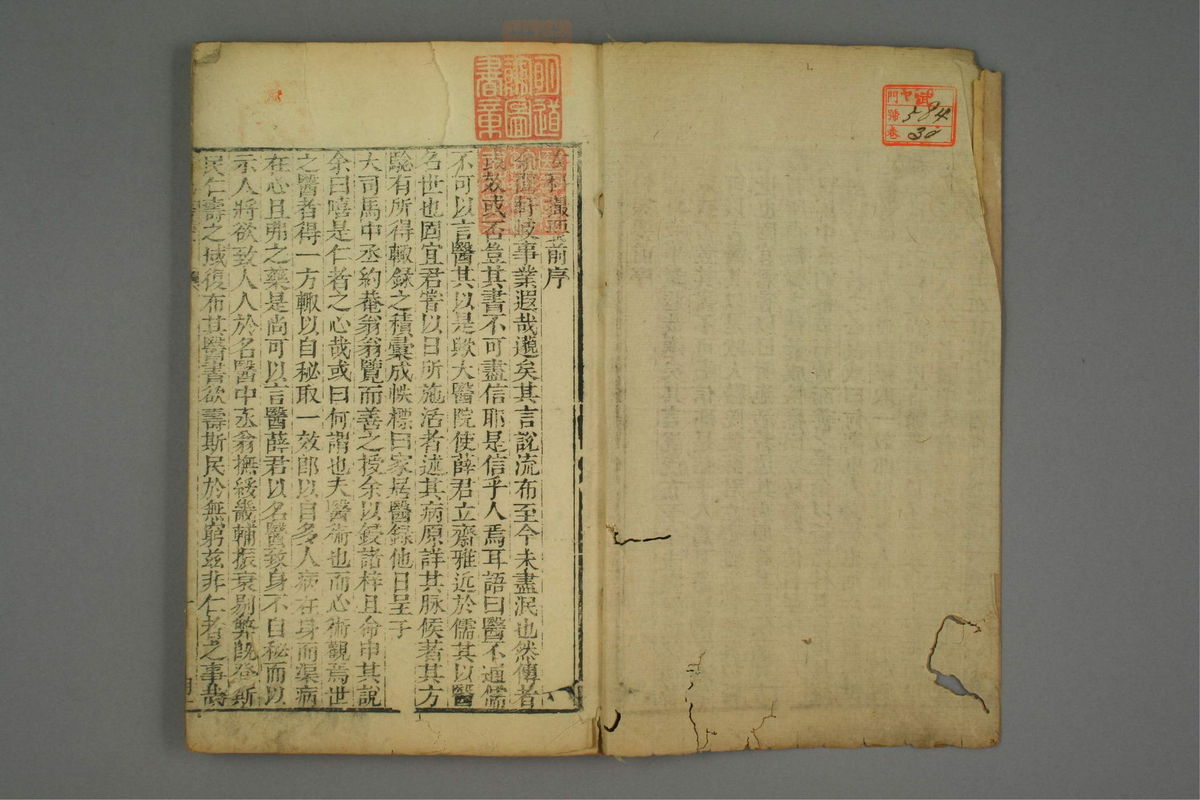 內科撮要前序
余聞軒岐事業遐哉邈矣其言說流布至今未盡泯也然傳者
或效或否豈其書不可盡信耶是信乎人焉耳語曰醫不通儒
不可以言醫其以是歟大醫院使薛君立齋雅近於儒其以醫
名世也固宜君嘗以日所施活者述其病原詳其脉候著其方
驗有所得輙録之積彙成帙標曰家居醫録他日呈于
大司馬中丞約菴翁翁覽而善之授余以鋟諸梓且命申其說
余曰嘻是仁者之心哉或曰何謂也夫醫術也而心術觀焉世
之醫者得一方輙以自秘取一效即以自多人病在身而渠病
在心且弗之藥是尚可以言醫薛君以名醫致身不自秘而以
示人將欲致人人於名醫中丞翁撫綏畿輔振衰剔弊旣登斯
民仁壽之域復布其醫書欲壽斯民於無窮茲非仁者之事哉
明道
館圖
書章
門
號
卷
584
30